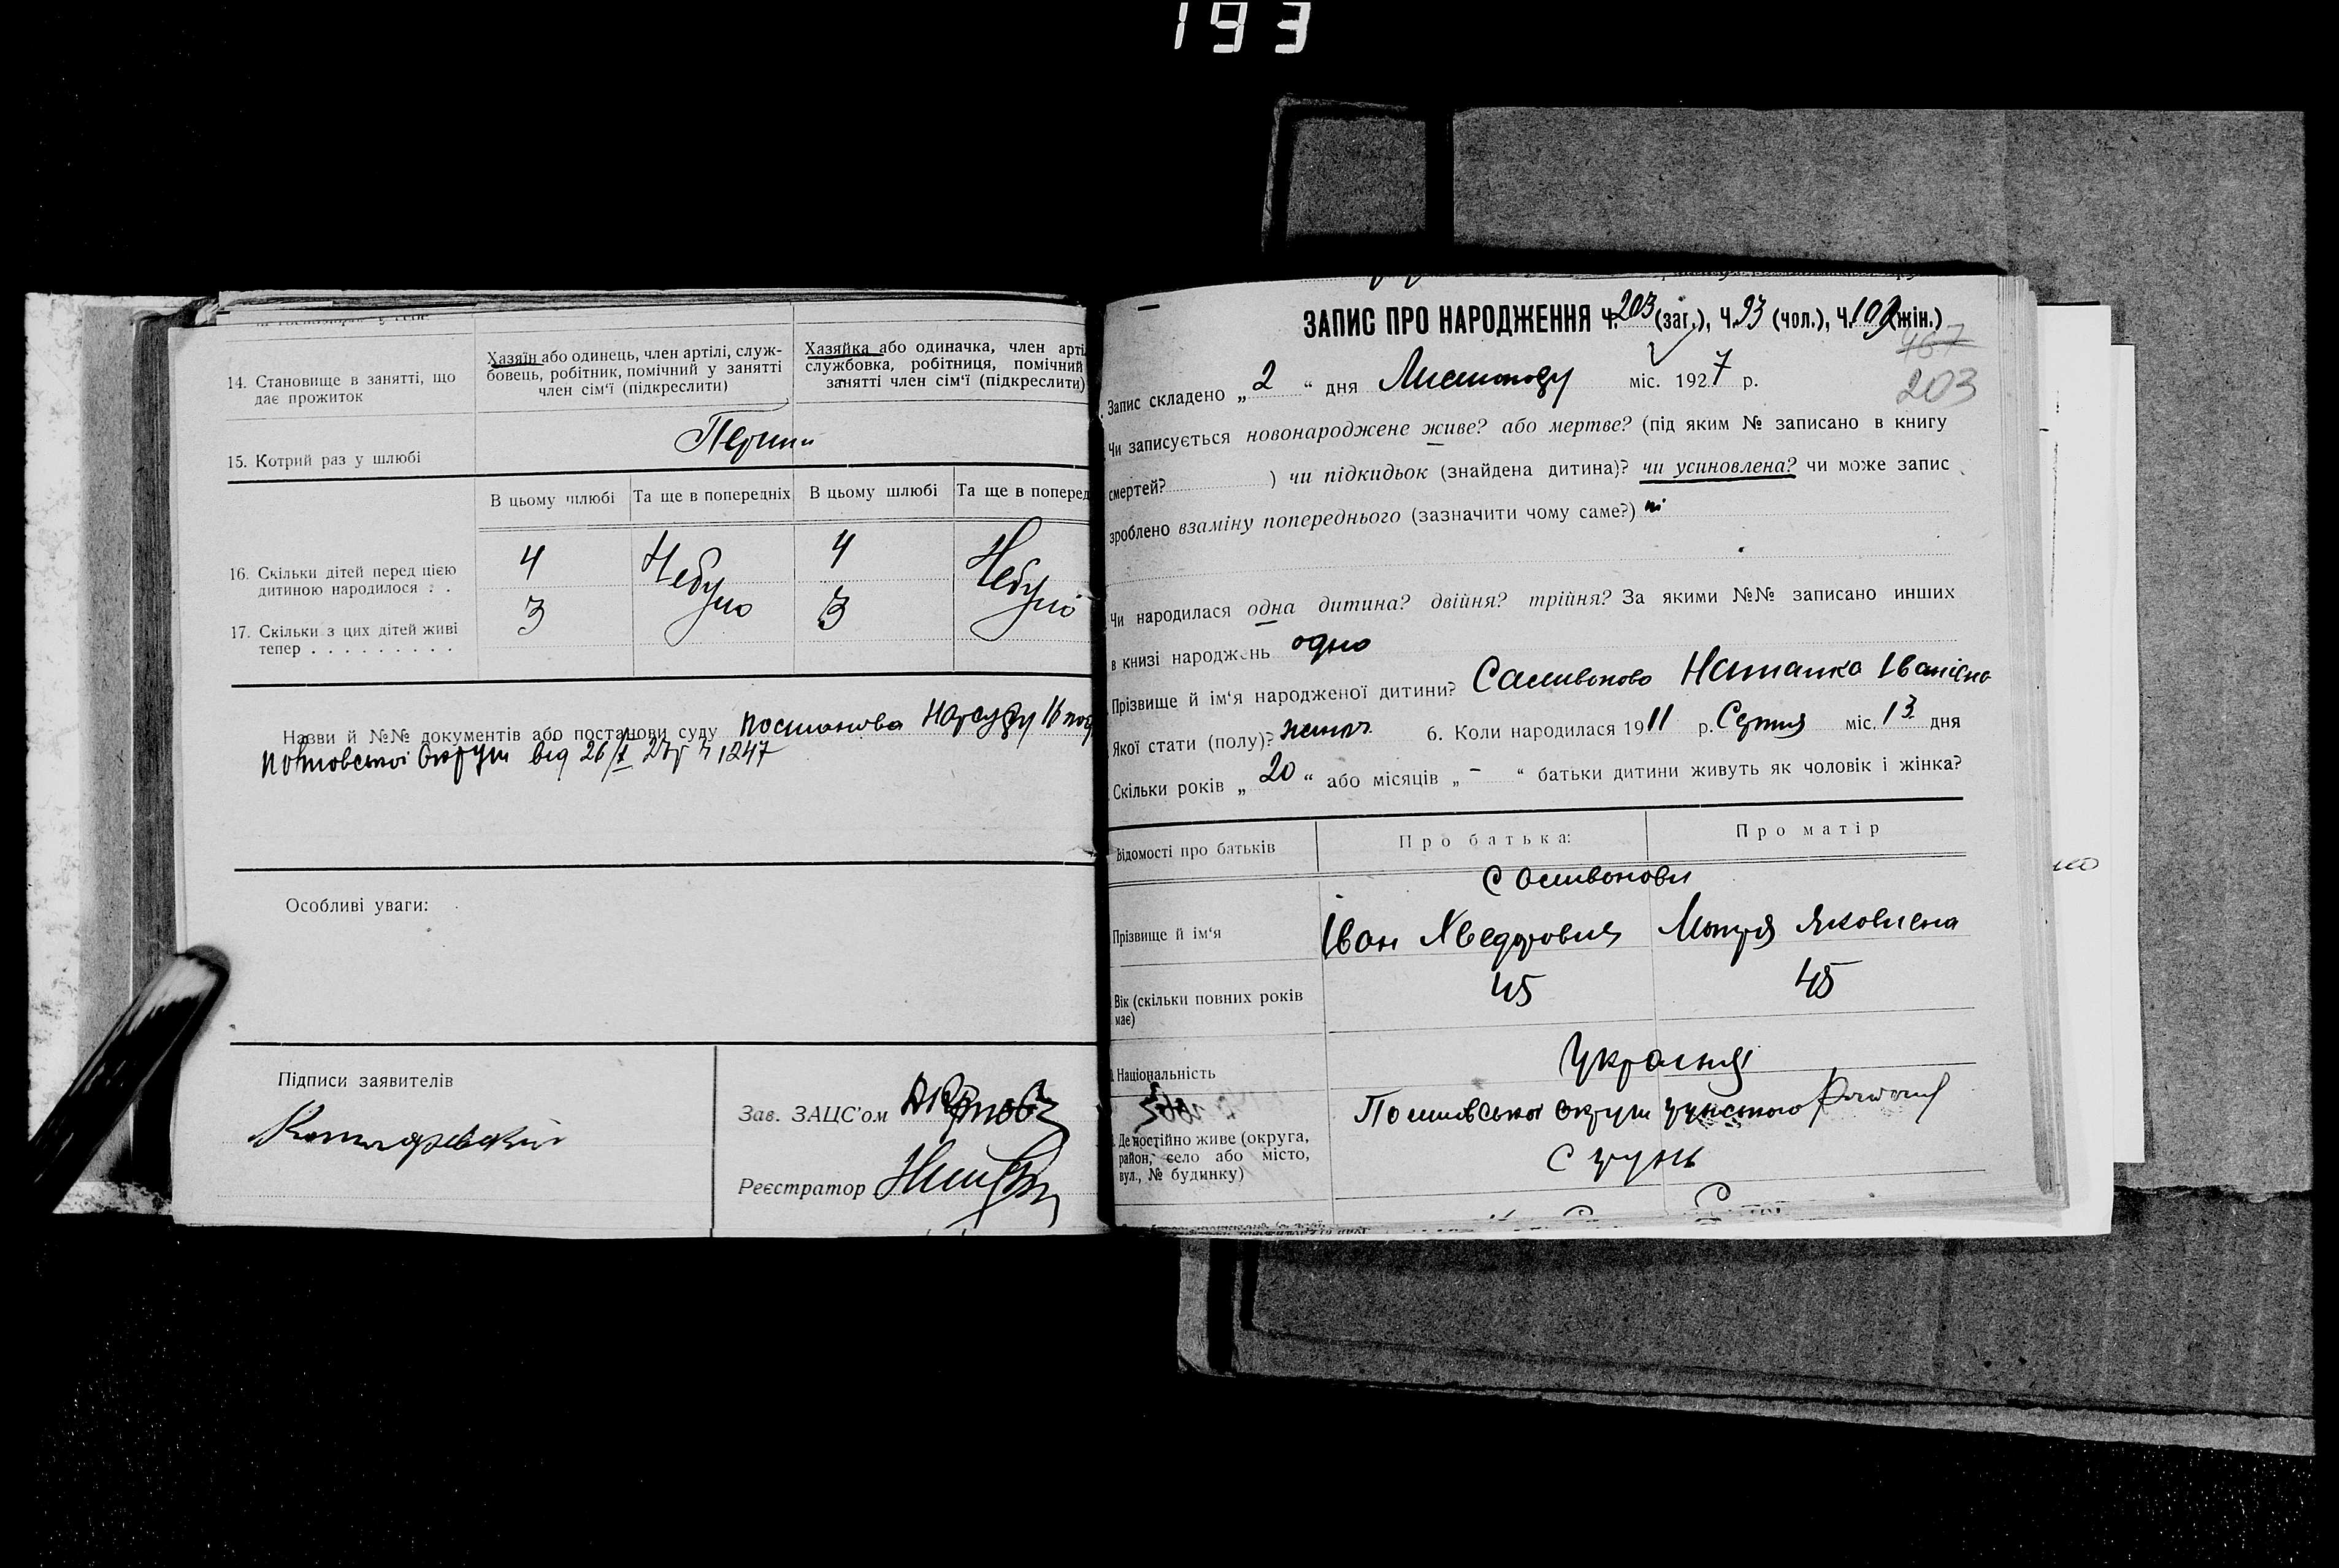 193
14. Становище в занятті, що дає прожиток
Хазяїн або одинець, член артілі, служ-
бовець, робітник, помічний у занятті
член сім'ї (підкреслити)
Хазяйка або одиначка, член арті
службовка, робітниця, помічний
занятті член сім'ї (підкреслити)
15. Котрий раз у шлюбі
Перший
В цьому шлюбі Та ще в попередніх В цьому шлюбі Та ще в поперед
16. Скільки дітей перед цією
дитиною народилося : .
4 Небуло 4 Небуло
17. Скільки з цих дітей живі
тепер . . . . . . . . .
3 3
Назви й №№ документів або постанови суду постанова Нарсуду 16
від 26/X 27р ч 1247
Особливі уваги:
Підписи заявителів
Зав. ЗАЦС'ом
Реєстратор
ЗАПИС ПРО НАРОДЖЕННЯ Ч. 203 (заг.), Ч. 93 (чол.), Ч. (жін.)
467
203
Запис складено „ 2 “ дня Листопаду міс. 1927 р.
Чи записується новонароджене живе? або мертве? (під яким № записано в книгу
смертей? ) чи підкидьок (знайдена дитина)? чи усиновлена? чи може запис
зроблено взаміну попереднього (зазначити чому саме?) ні
Чи народилася одна дитина? двійня? трійня? За якими №№ записано инших
в книзі народжень одно
Прізвище й ім'я народженої дитини? Наталка Іванівна
Якої стати (полу)? жіноч. 6. Коли народилася 1911 р. Серпня міс. 13 дня
Скільки років „ 20 “ або місяців „ - “ батьки дитини живуть як чоловік і жінка?
Відомості про батьків
Про батька:
Про матір
Прізвище й ім'я
Іван Хведорович Мотря Яковлевна
Вік (скільки повних років
має)
45 45
Національність
Де постійно живе (округа,
район, село або місто,
вул., № будинку)
округи